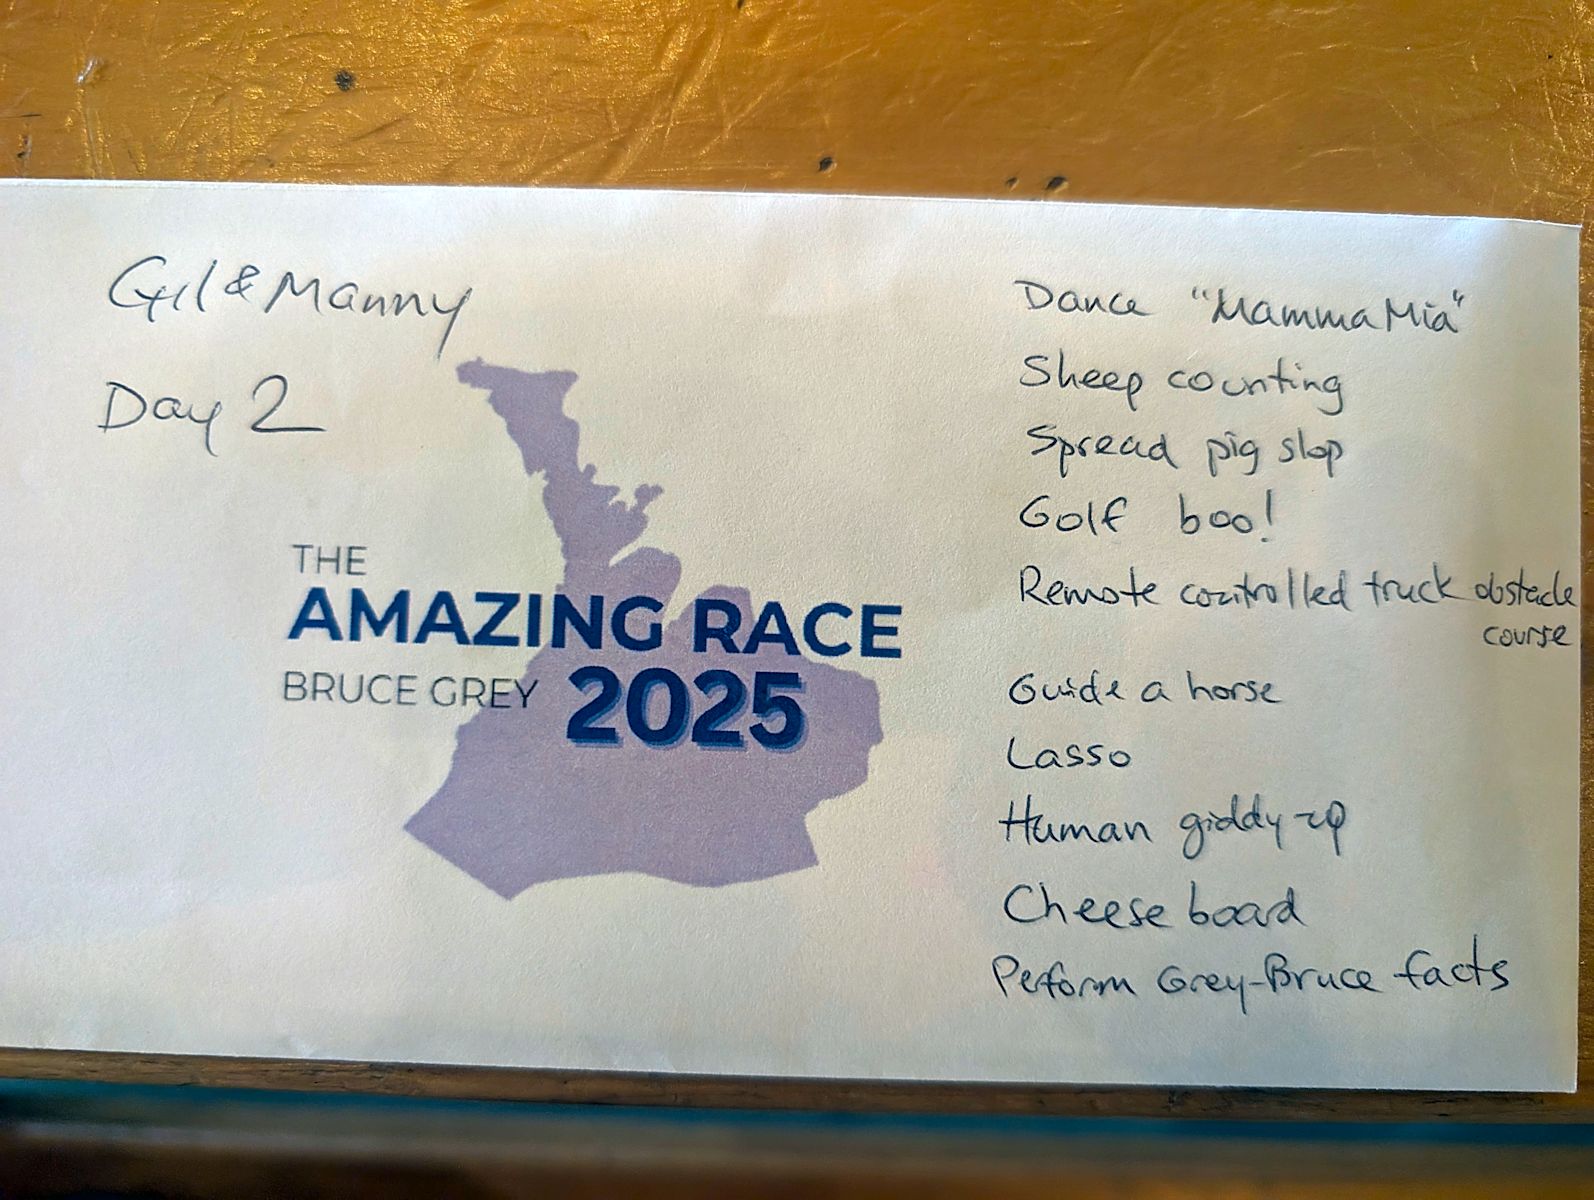 Gil & Manny
Day 2
THE
AMAZING RACE
BRUCE GREY 2025
Dance "Mamma Mia"
Sheep counting
Spread pig slop
Golf boo!
Remote controlled truck obstacle
course
Guide a horse
Lasso
Human giddy-up
Cheese board
Perform Grey-Bruce facts